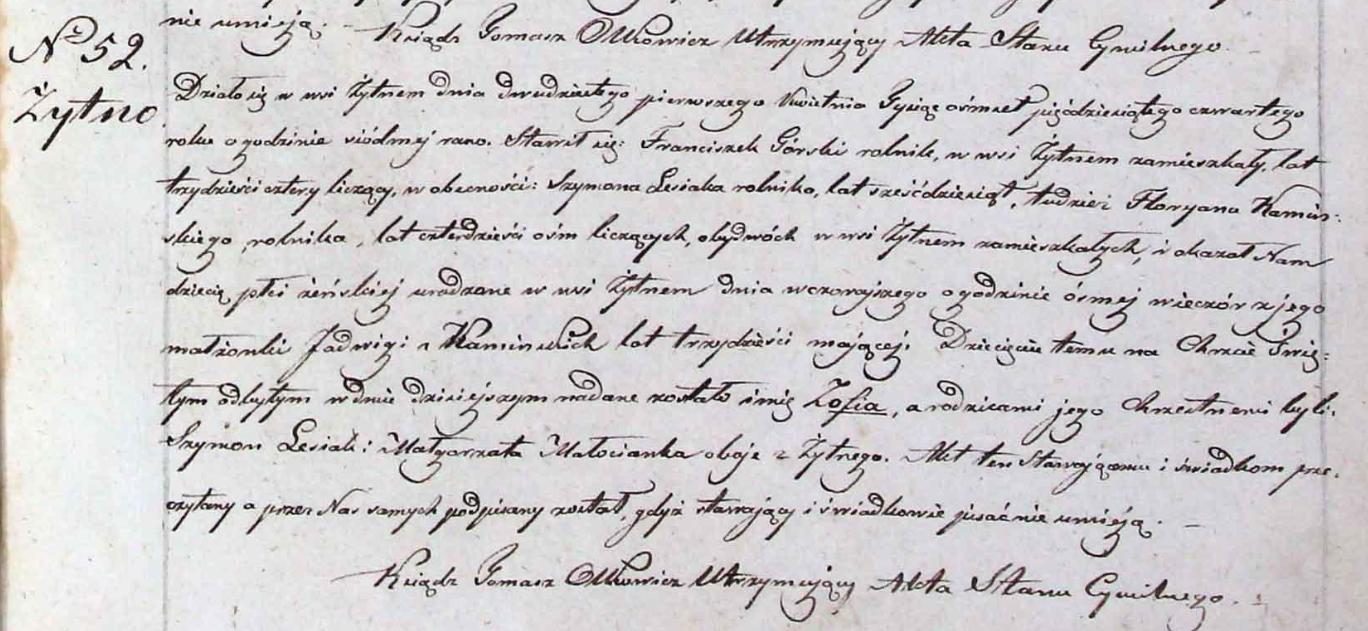 nie umieją. – Ksiądz Tomasz Olkowicz Utrzymujący Akta Stanu Cywilnego.
No 52.
Żytno
Działo się w wsi Żytnem dnia dwudziestego pierwszego Kwietnia Tysiąc ośmset pięćdziesiątego czwartego
roku o godzinie siódmej rano. Stawił się: Franciszek Górski rolnik, w wsi Żytnem zamieszkały, lat
trzydzieści cztery liczący, w obecności: Szymona Lesiaka rolnika, lat sześćdziesiąt, tudzież Floryana Kamiń:
skiego rolnika, lat czterdzieści ośm liczących, obydwóch w wsi Żytnem zamieszkałych, i okazał Nam
dziecię płci żeńskiej urodzone w wsi Żytnem dnia wczorajszego o godzinie ósmej wieczór z jego
małżonki Jadwigi z Kamińskich lat trzydzieści mającej. Dziecięciu temu na Chrzcie Świę:
tym odbytym w dniu dzisiejszym nadane zostało imię Zofia, a rodzicami jego Chrzestnemi byli:
Szymon Lesiak i Małgorzata Małocianka oboje z Żytnego. Akt ten Stawającemu i świadkom prze:
czytany a przez Nas samych podpisany został, gdyż stawający i świadkowie pisać nie umieją. –
Ksiądz Tomasz Olkowicz Utrzymujący Akta Stanu Cywilnego.